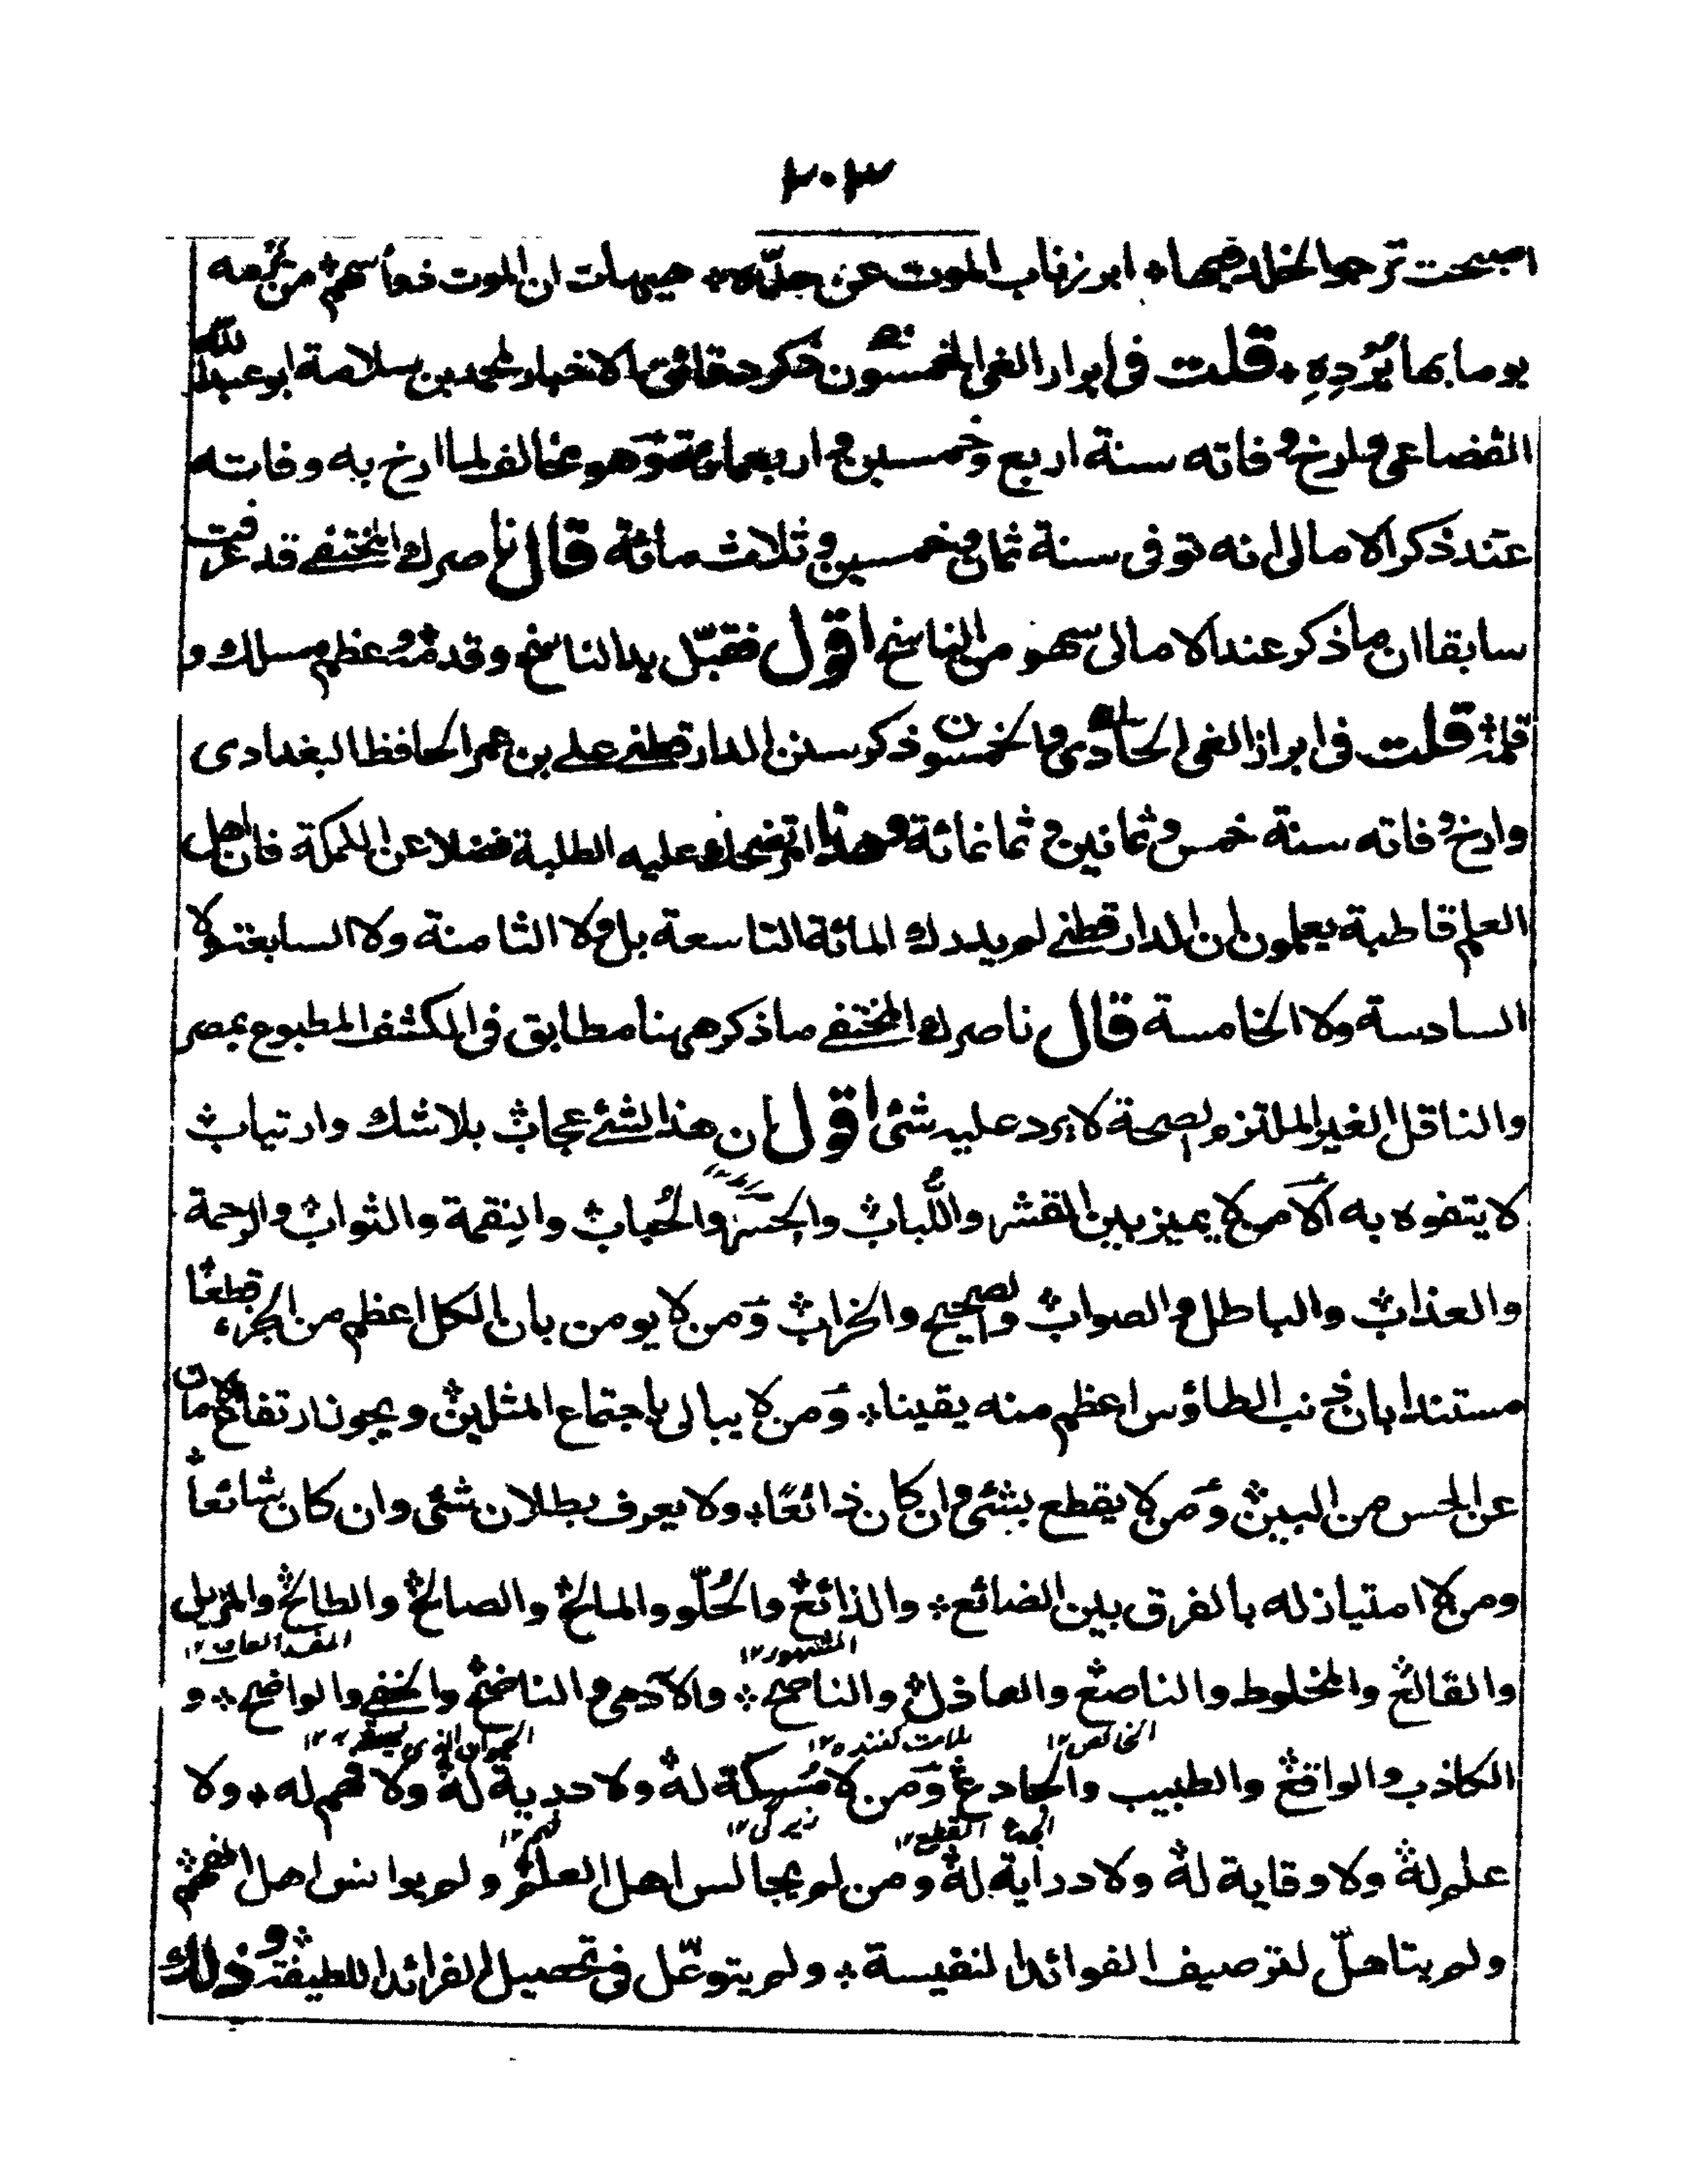 ٢٠٣
اصبحت ترجو الخلد فيها ابرز ناب الموت عن حدّه هيهات ان الموت ذو اسهم من يرمه
يوما بها يُرْدِهِ قلت فى ابراز الغى الخمسون ذكر دقائق الاخبار لمحمد بن سلامة ابو عبد الله
القضاعى وارخ وفاته سنة اربع وخمسين واربعمائة وهو مخالف لما ارخ به وفاته
عند ذكر الامالى انه توفى سنة ثمان وخمسين وثلاث مائة قال ناصرك المختفى قد عرفت
سابقا ان ما ذكر عند الامالى سهو من الناسخ اقول فقبّل يد الناسخ وقدمه وعظم مسلك و
قلمه قلت فى ابراز الغى الحادى والخمسون ذكر سنن الدارقطنى على بن عمر الحافظ البغدادى
وارخ وفاته سنة خمس وثمانين وثمانمائة وهذا امر تضحك عليه الطلبة فضلا عن الكملة فان اهل
العلم قاطبة يعلمون ان الدارقطنى لم يدرك المائة التاسعة بل ولا الثامنة ولا السابعة ولا
السادسة ولا الخامسة قال ناصرك المختفى ما ذكر ههنا مطابق فى الكشف المطبوع بمصر
والناقل الغير الملتزم لصحة لا يرد عليه شئ اقول ان هذا لشئ عجاب بلا شك وارتياب
لا يتفوه به الا من لا يميز بين القشر واللُّباب والحسن والحُباب والنِقمة والثواب والرحمة
والعذاب والباطل والصواب والصحيح والخراب وَمن لا يومن بان الكل اعظم من الجزء قطعًا
مستندا بان ذنب الطاؤس اعظم منه يقينا وَمن لا يبالى باجتماع المثلين ويجوز ارتفاع الامان
عن الحس من البين وَمن لا يقطع بشئ وان كان ذائعًا ولا يعرف بطلان شئ وان كان شائعاً
ومن لا امتياز له بالفرق بين الضائع والذائع والحُلو والمالح والصالح والطالح والمزيل
المشهور ١٢
والقالع والمخلوط والناصع والعاذل والناصح والآدمى والناضح والخفى والواضح و
الخالص ١٢ ملامت كننده ١٢
الكاذب والواقع والطبيب والجادع وَمن لا مُسكة له ولا دربة له ولا فهم له ولا
زيركى ١٢ فهم ١٢
علم له ولا وقاية له ولا دراية له ومن لم يجالس اهل العلم ولم يوانس اهل الفهم
ولم يتاهلّ لترصيف الفوائد النفيسة ولم يتوغّل فى تحصيل الفرائد اللطيفة وذلك